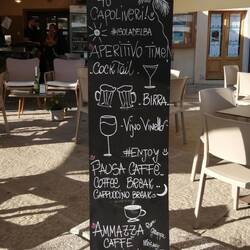 CAPOLIVERI!
#ISOLADELBA
APERITIVO TIME!
COCKTAIL.
BIRRA..
VINO VINELLO
#ENJOY
PAUSA CAFFE
COFFEE BREAK
CAPPUCCINO BREAK
AMMAZZA
CAFFE